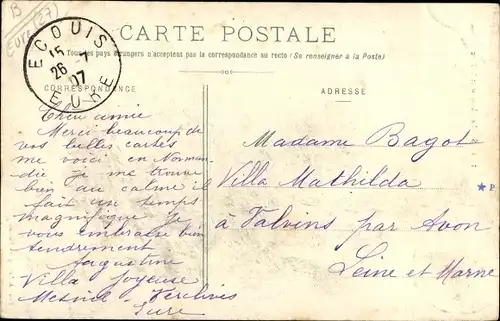 B
EURE (27)
ECOUIS
15
26 -7
07
EURE
CARTE POSTALE
Tous les pays étrangers n'acceptent pas la correspondance au recto (Se renseigner à la Poste)
CORRESPONDANCE
ADRESSE
Chère amie
Merci beaucoup de
vos belles cartes
me voici en Norman-
die je me trouve
bien au calme il
fait un temps
magnifique Je
vous embrasse bien
tendrement
Augustine
Villa Joyeuse
Mesnil Verclives
Eure
Madame Bagot
Villa Mathilda
à Valvins par Avon
Seine et Marne